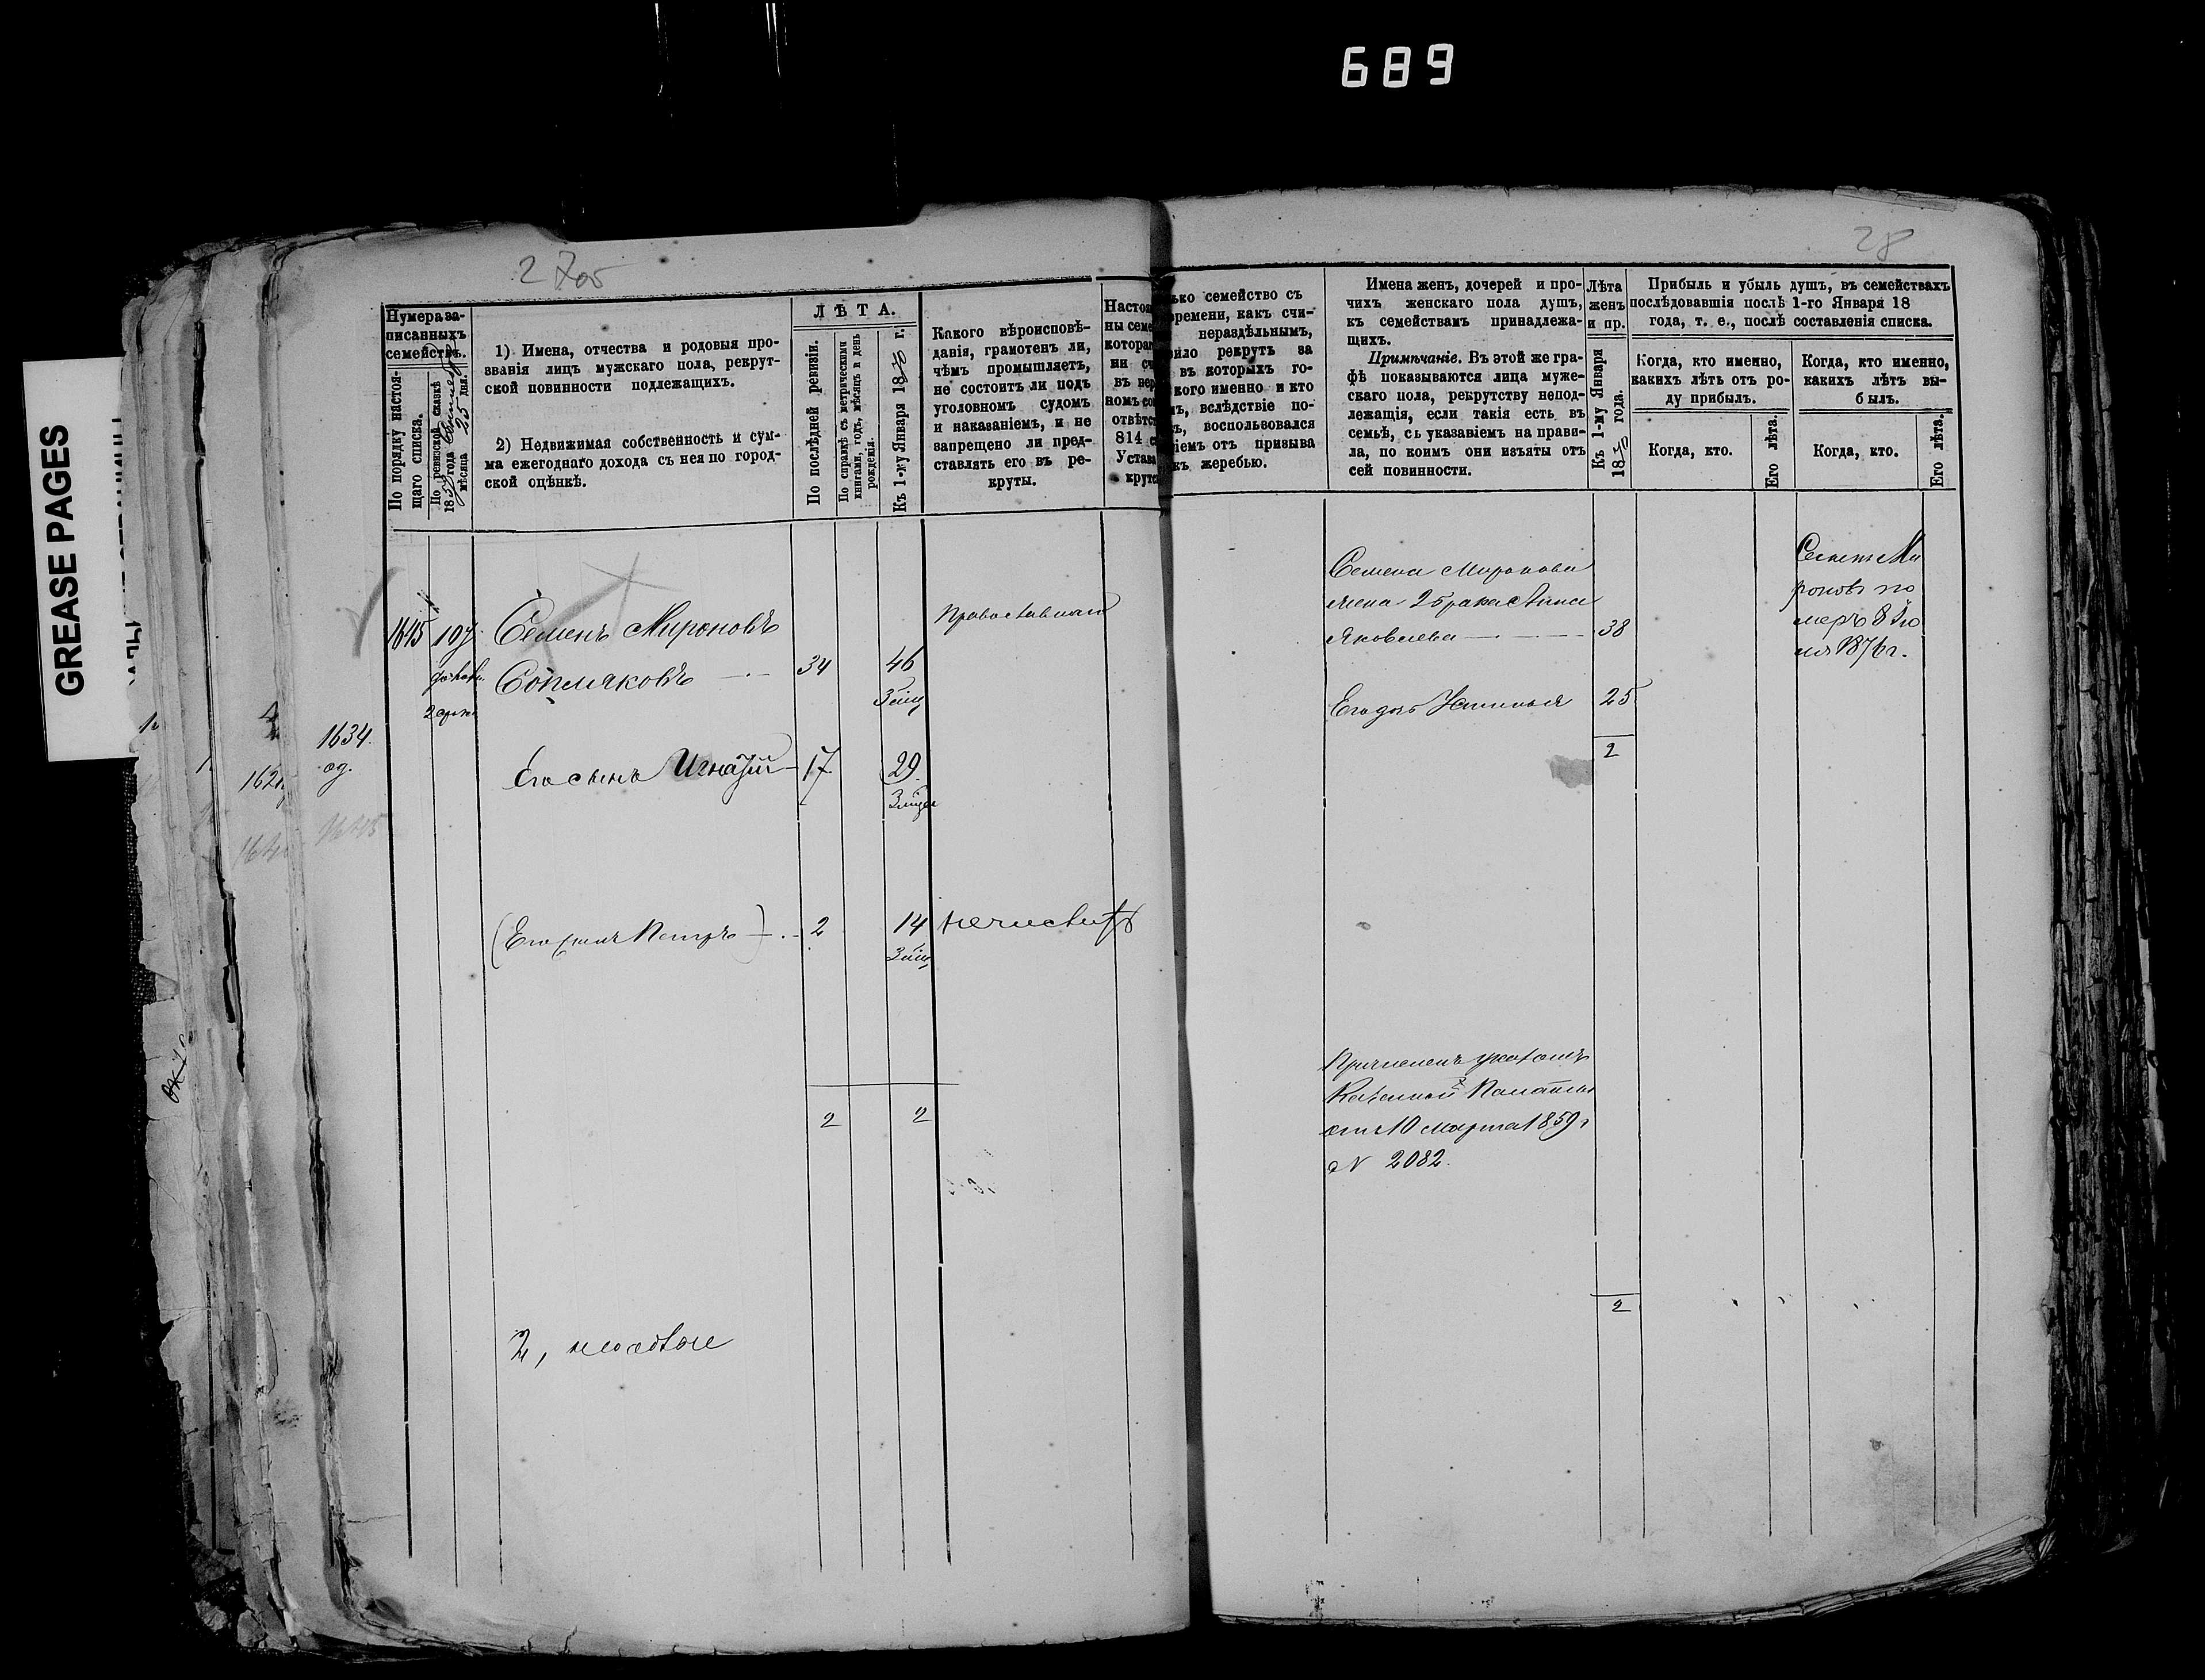 689
GREASE PAGES
2 705
28
Нумера за-
писанныхъ
семействъ.
По порядку настоя-
щаго списка.
По ревизской сказкѣ
18 года
мѣсяца 25 дня.
1) Имена, отчества и родовыя про-
званія лицъ мужскаго пола, рекрут-
ской повинности подлежащихъ.
2) Недвижимая собственность и сум-
ма ежегоднаго дохода съ нея по город-
ской оцѣнкѣ.
ЛѢТА.
По послѣдней ревизіи.
По справкѣ съ метрическими
книгами, годъ, мѣсяцъ и день
рожденія.
Къ 1-му Января 1870 г.
Какого вѣроисповѣ-
данія, грамотенъ ли,
чѣмъ промышляетъ,
не состоитъ ли подъ
уголовномъ судомъ
и наказаніемъ, и не
запрещено ли пред-
ставлять его въ ре-
круты.
Настоя
ны семе
котора
ни сч
въ нер
номъ со
отвѣтс
814 с
Уста
крут
ько семейство съ
времени, какъ счи-
нераздѣльнымъ,
вило рекрутъ за
въ которыхъ го-
кого именно и кто
ъ, вслѣдствіе по-
ъ, воспользовался
іемъ отъ призыва
къ жеребью.
Имена женъ, дочерей и про-
чихъ женскаго пола душъ,
къ семействамъ принадлежа-
щихъ.
Примѣчаніе. Въ этой же гра-
фѣ показываются лица муже-
скаго пола, рекрутству непод-
лежащія, если такія есть въ
семьѣ, съ указаніемъ на прави-
ла, по коимъ они изъяты отъ
сей повинности.
Лѣта
женъ
и пр.
Къ 1-му Января
1870 года.
Прибыль и убыль душъ, въ семействахъ
послѣдовавшія послѣ 1-го Января 18
года, т. е., послѣ составленія списка.
Когда, кто именно,
какихъ лѣтъ отъ ро-
ду прибылъ.
Когда, кто именно,
какихъ лѣтъ вы-
былъ.
Когда, кто.
Его лѣта.
Когда, кто.
Его лѣта.
1645 107 Семенъ Мироновъ
Сопляковъ 34 46
Православнаго
Его сынъ Игнатій 17 29
(Его сынъ Петръ) 2 14 не числитъ
2 2
2, людвые
Семена Миронова
жена 2 брака Анна
Яковлева 38
Его дочь Устинья 25
2
Причисленъ указомъ
Казенной Палаты
отъ 10 марта 1859 г
N 2082.
2
Семенъ Ми
роновъ по
меръ 8 Ію
ля 1876 г.
1634.
од.
1645